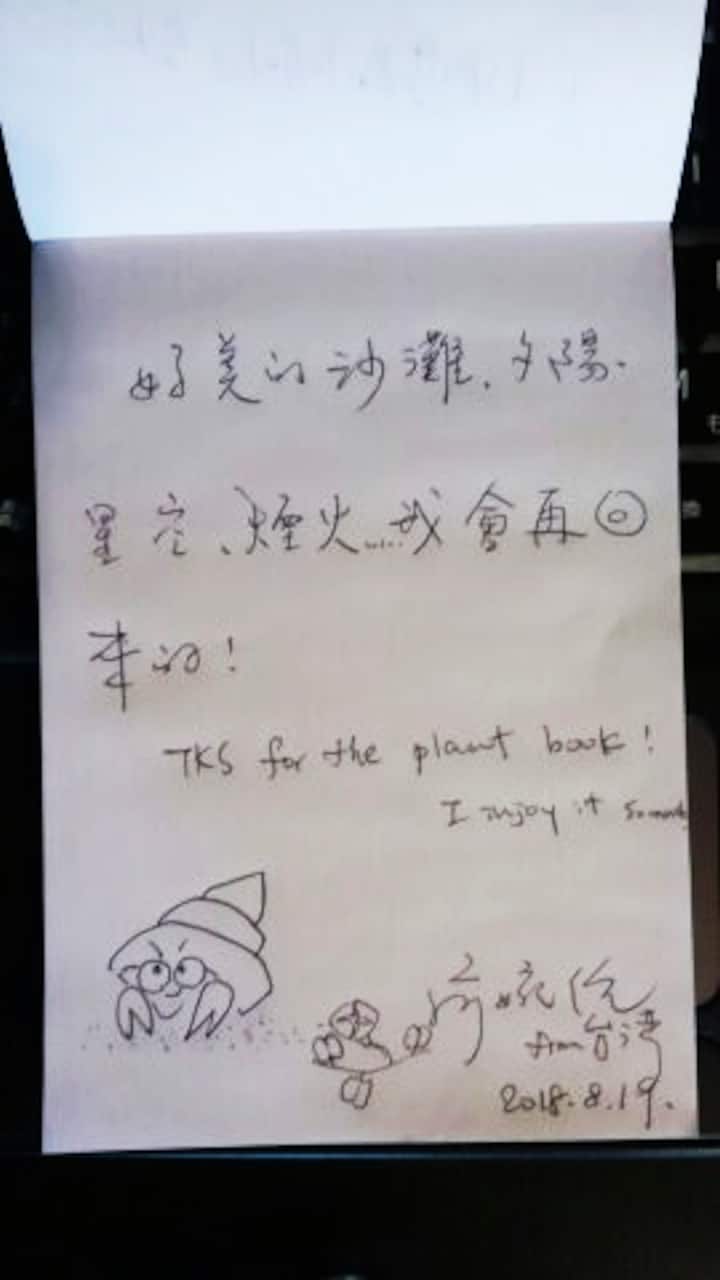 好美的沙灘、夕陽、
星空、煙火……我會再回
來的！
TKS for the plant book!
I enjoy it so much
from 台灣
2018.8.19.